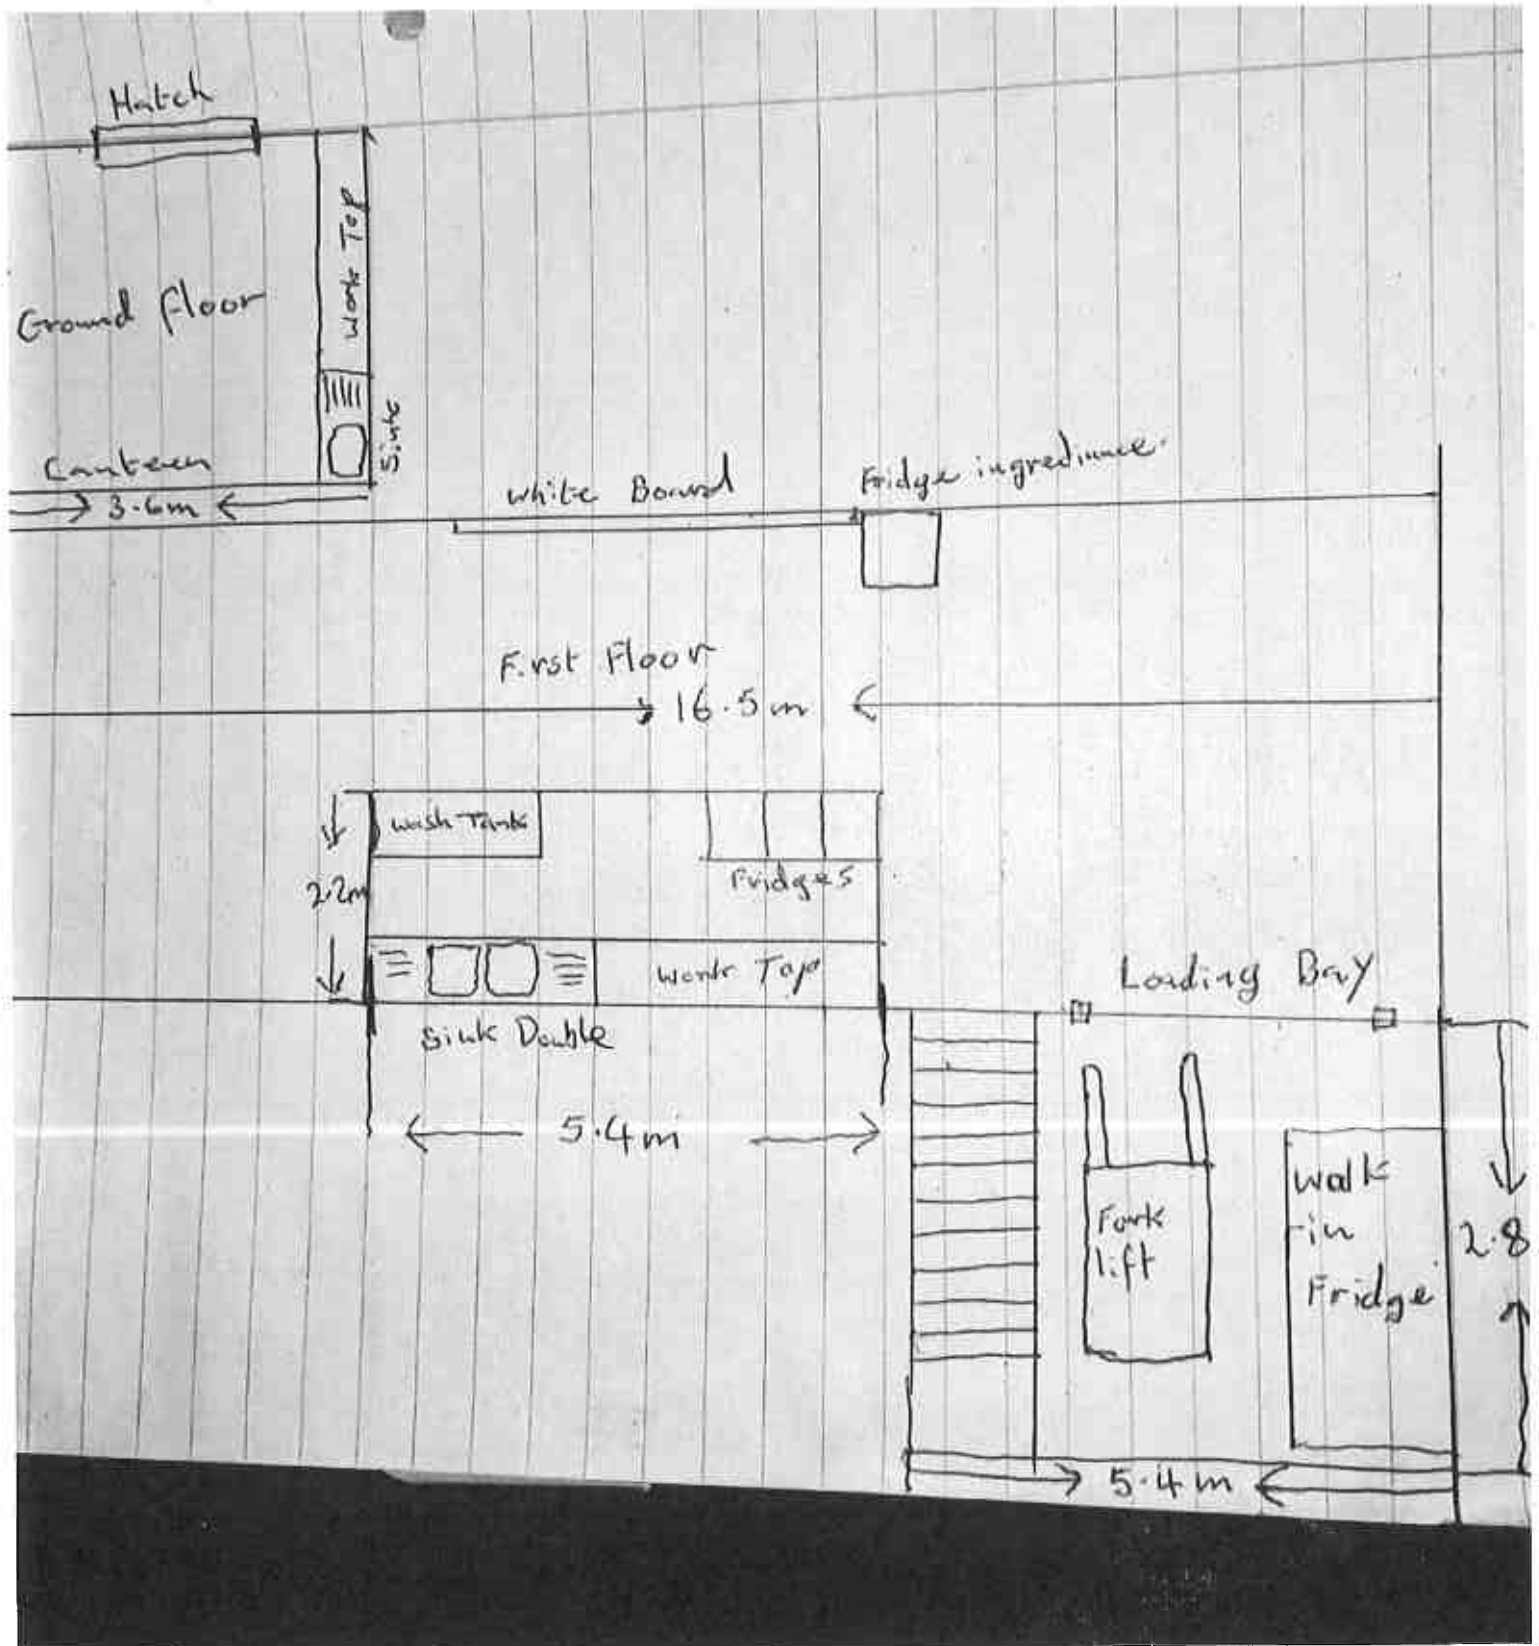 Hatch
Work Top
Ground floor
Sink
Canteen
3.6m
White Board
Fridge ingrediance.
First Floor
16.5m
Wash Tank
Fridges
2.2m
Work Top
Sink Double
Loading Bay
5.4m
Fork
lift
Walk
-in
Fridge
2.8
5.4m